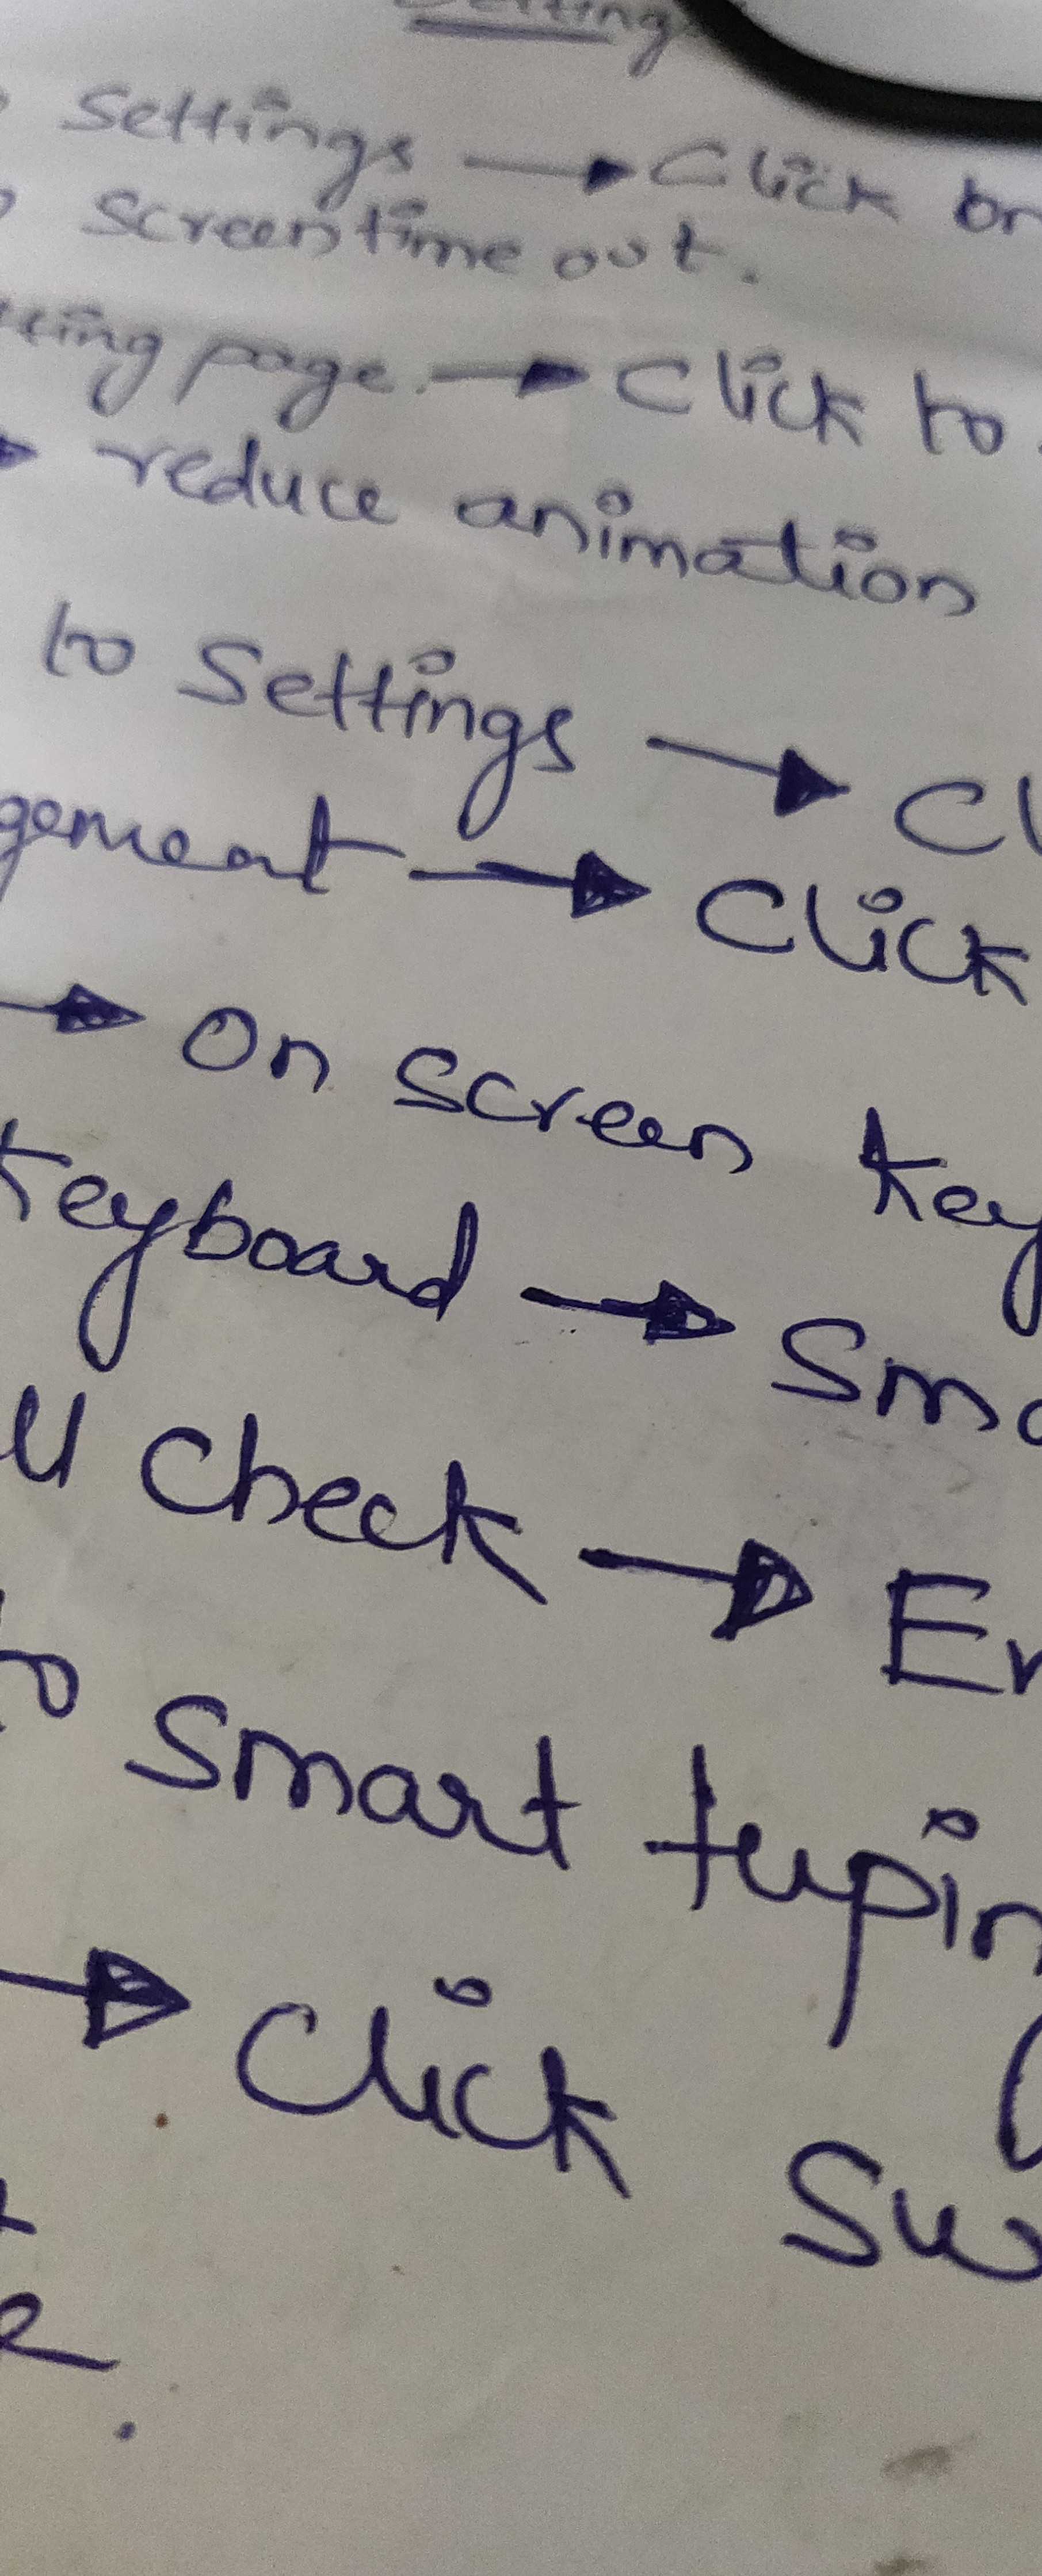 Settings → Click on
Screen time out.
tting page. → Click to
→ reduce animation
to Settings → Cl
gement → Click
→ On screen key
Keyboard → Sma
ll check → En
to Smart typin
→ Click Sw